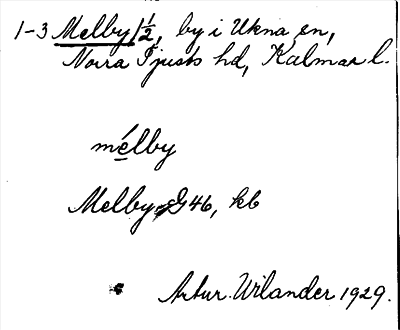 1-3 Melby 1 1/2, by i Ukna sn,
Norra Tjusts hd, Kalmar l.
mélby
Melby G46, kb
Artur Wilander 1929.